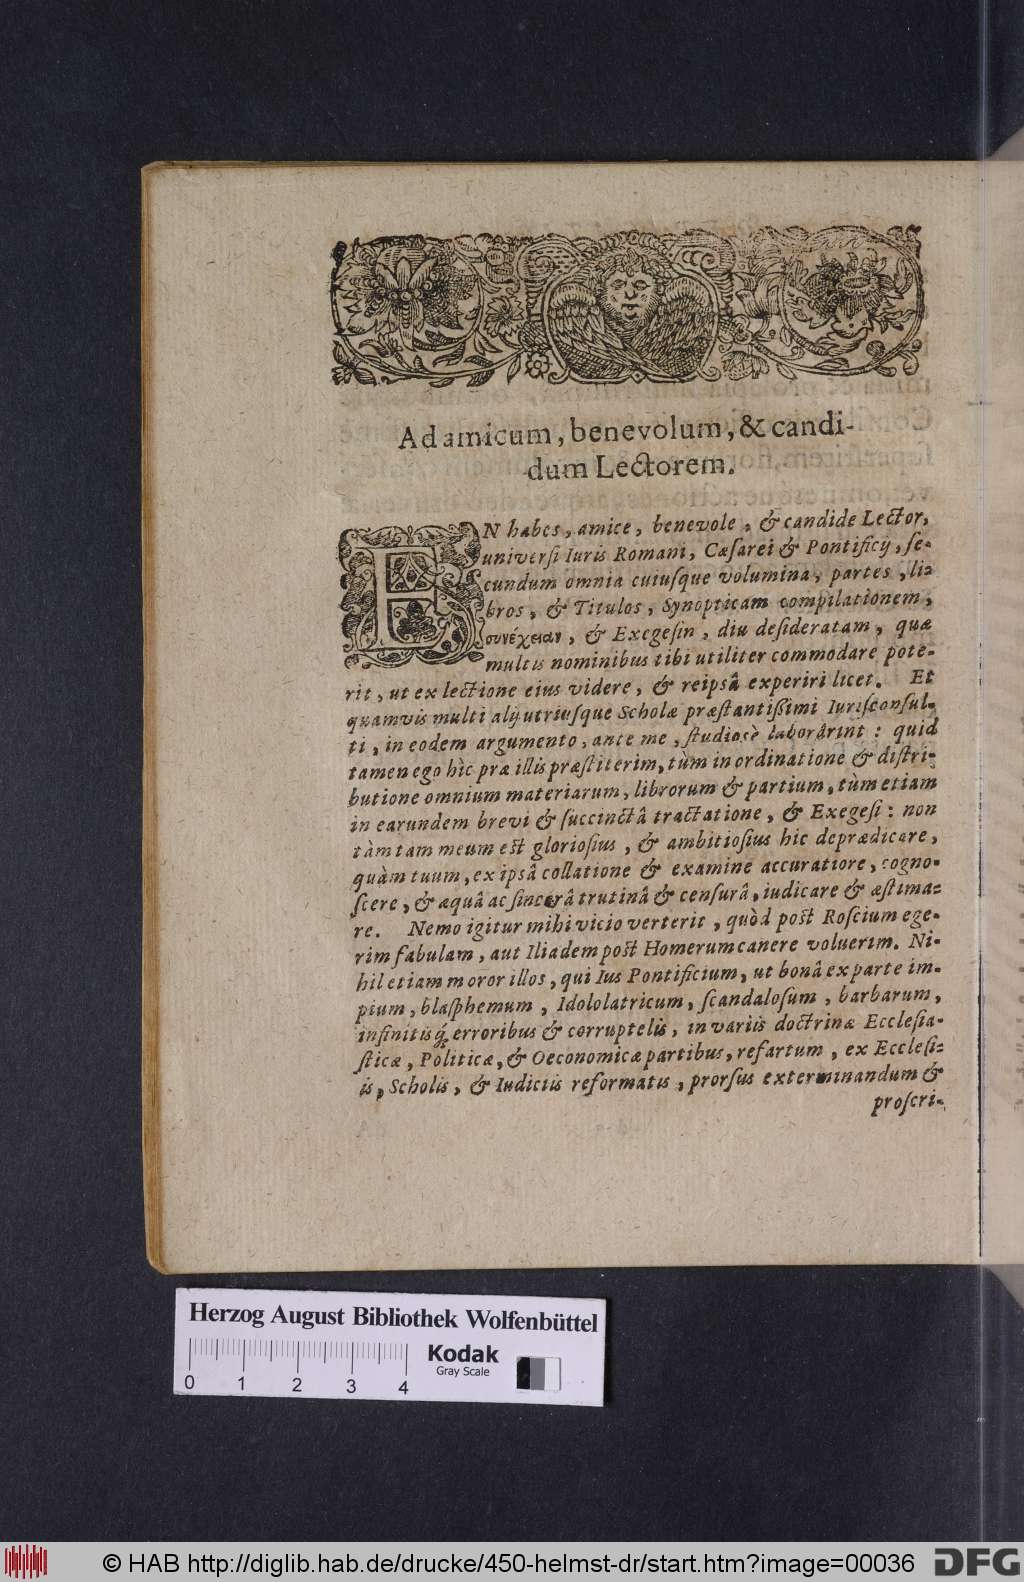 Ad amicum, benevolum, & candi-
dum Lectorem.
EN habes, amice, benevole, & candide Lector,
universi Iuris Romani, Cæsarei & Pontificij, se-
cundum omnia cuiusque volumina, partes, li-
bros, & Titulos, Synopticam compilationem,
συνέχειαν, & Exegesin, diu desideratam, quæ
multis nominibus tibi utiliter commodare pote-
rit, ut ex lectione eius videre, & reipsâ experiri licet. Et
quamvis multi alij utriusque Scholæ præstantißimi Iurisconsul-
ti, in eodem argumento, ante me, studiosè laborârint: quid
tamen ego hìc præ illis præstiterim, tùm in ordinatione & distri-
butione omnium materiarum, librorum & partium, tùm etiam
in earundem brevi & succinctâ tractatione, & Exegesi: non
tàm tam meum est gloriosius, & ambitiosius hic deprædicare,
quàm tuum, ex ipsâ collatione & examine accuratiore, cogno-
scere, & æquâ ac sincerâ trutinâ & censurâ, iudicare & æstima-
re. Nemo igitur mihi vicio verterit, quòd post Roscium ege-
rim fabulam, aut Iliadem post Homerum canere voluerim. Ni-
hil etiam moror illos, qui Ius Pontificium, ut bonâ ex parte im-
pium, blasphemum, Idololatricum, scandalosum, barbarum,
infinitisq́; erroribus & corruptelis, in variis doctrinæ Ecclesia-
sticæ, Politicæ, & Oeconomicæ partibus, refartum, ex Ecclesi-
is, Scholis, & Iudiciis reformatis, prorsus exterminandum &
proscri-
Herzog August Bibliothek Wolfenbüttel
Kodak
Gray Scale
0 1 2 3 4
© HAB http://diglib.hab.de/drucke/450-helmst-dr/start.htm?image=00036
DFG